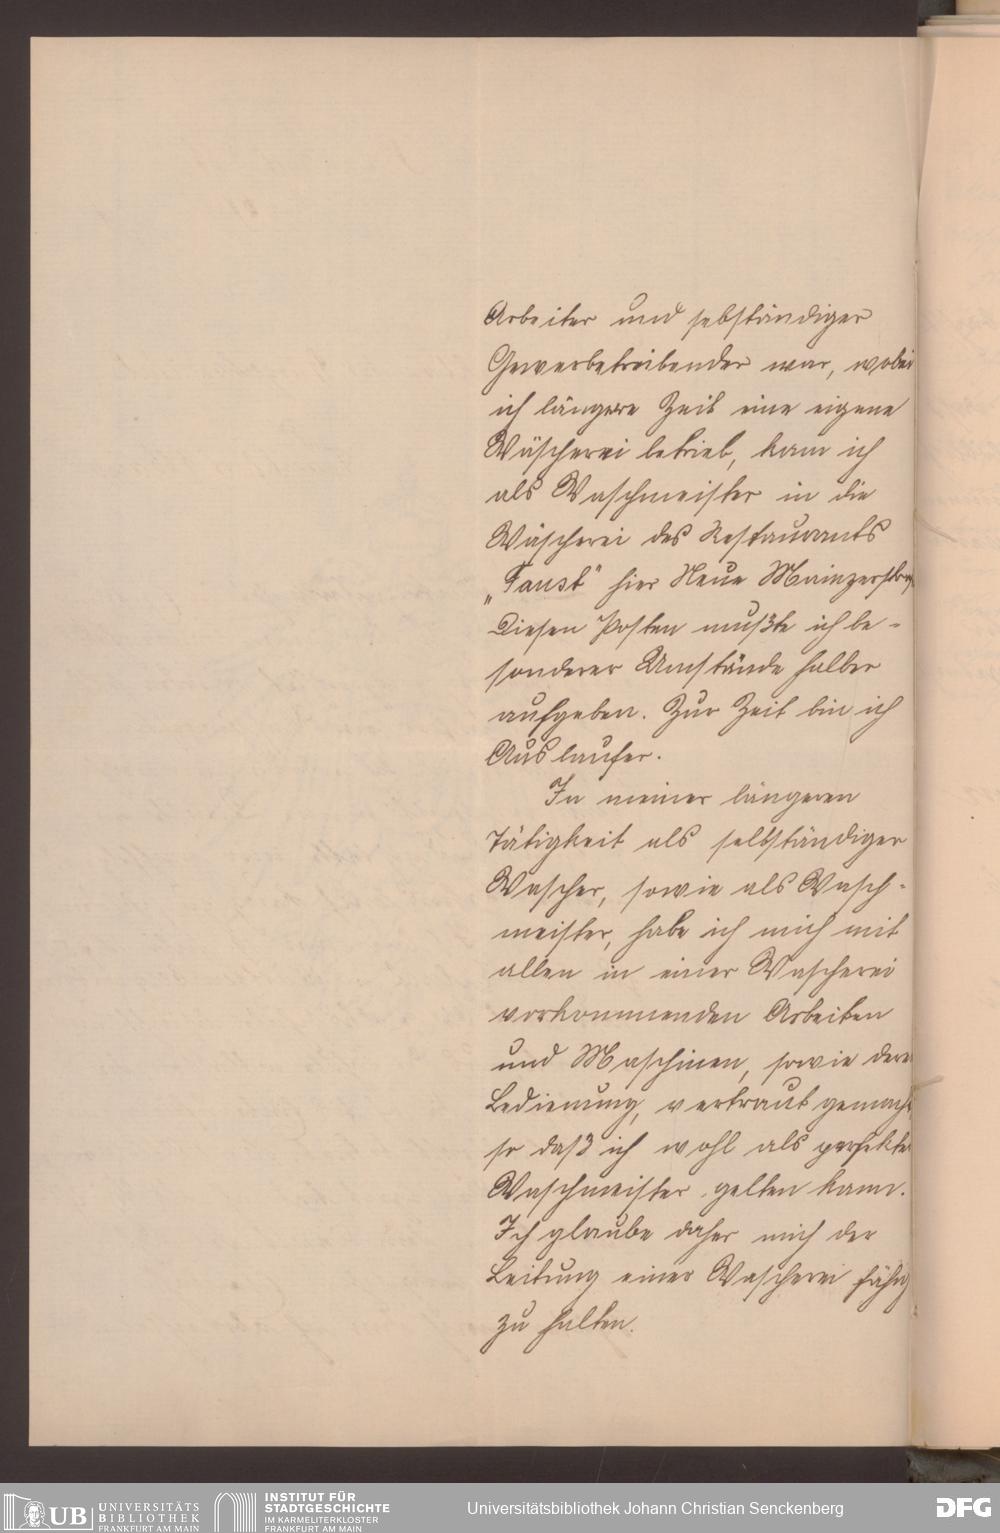 Arbeiter und sebständiger
Gewerbetreibender war, wobei
ich längere Zeit eine eigene
Wäscherei betrieb, kam ich
als Waschmeister in die
Wäscherei des Restaurants
„Faust" hier Neue Mainzerstraße
Diesen Posten mußte ich be-
sonderer Umstände halber
aufgeben. Zur Zeit bin ich
Auslaufer.
In meiner längeren
Tätigkeit als selbständiger
Wascher, sowie als Wasch-
meister, habe ich mich mit
allen in einer Wascherei
vorkommenden Arbeiten
und Maschinen, sowie deren
Bedienung, vertraut gemacht
so daß ich wohl als perfekter
Waschmeister gelten kann.
Ich glaube daher mich der
Leitung einer Wascherei fähig
zu halten.
UB UNIVERSITÄTS
BIBLIOTHEK
FRANKFURT AM MAIN
INSTITUT FÜR
STADTGESCHICHTE
IM KARMELITERKLOSTER
FRANKFURT AM MAIN
Universitätsbibliothek Johann Christian Senckenberg
DFG